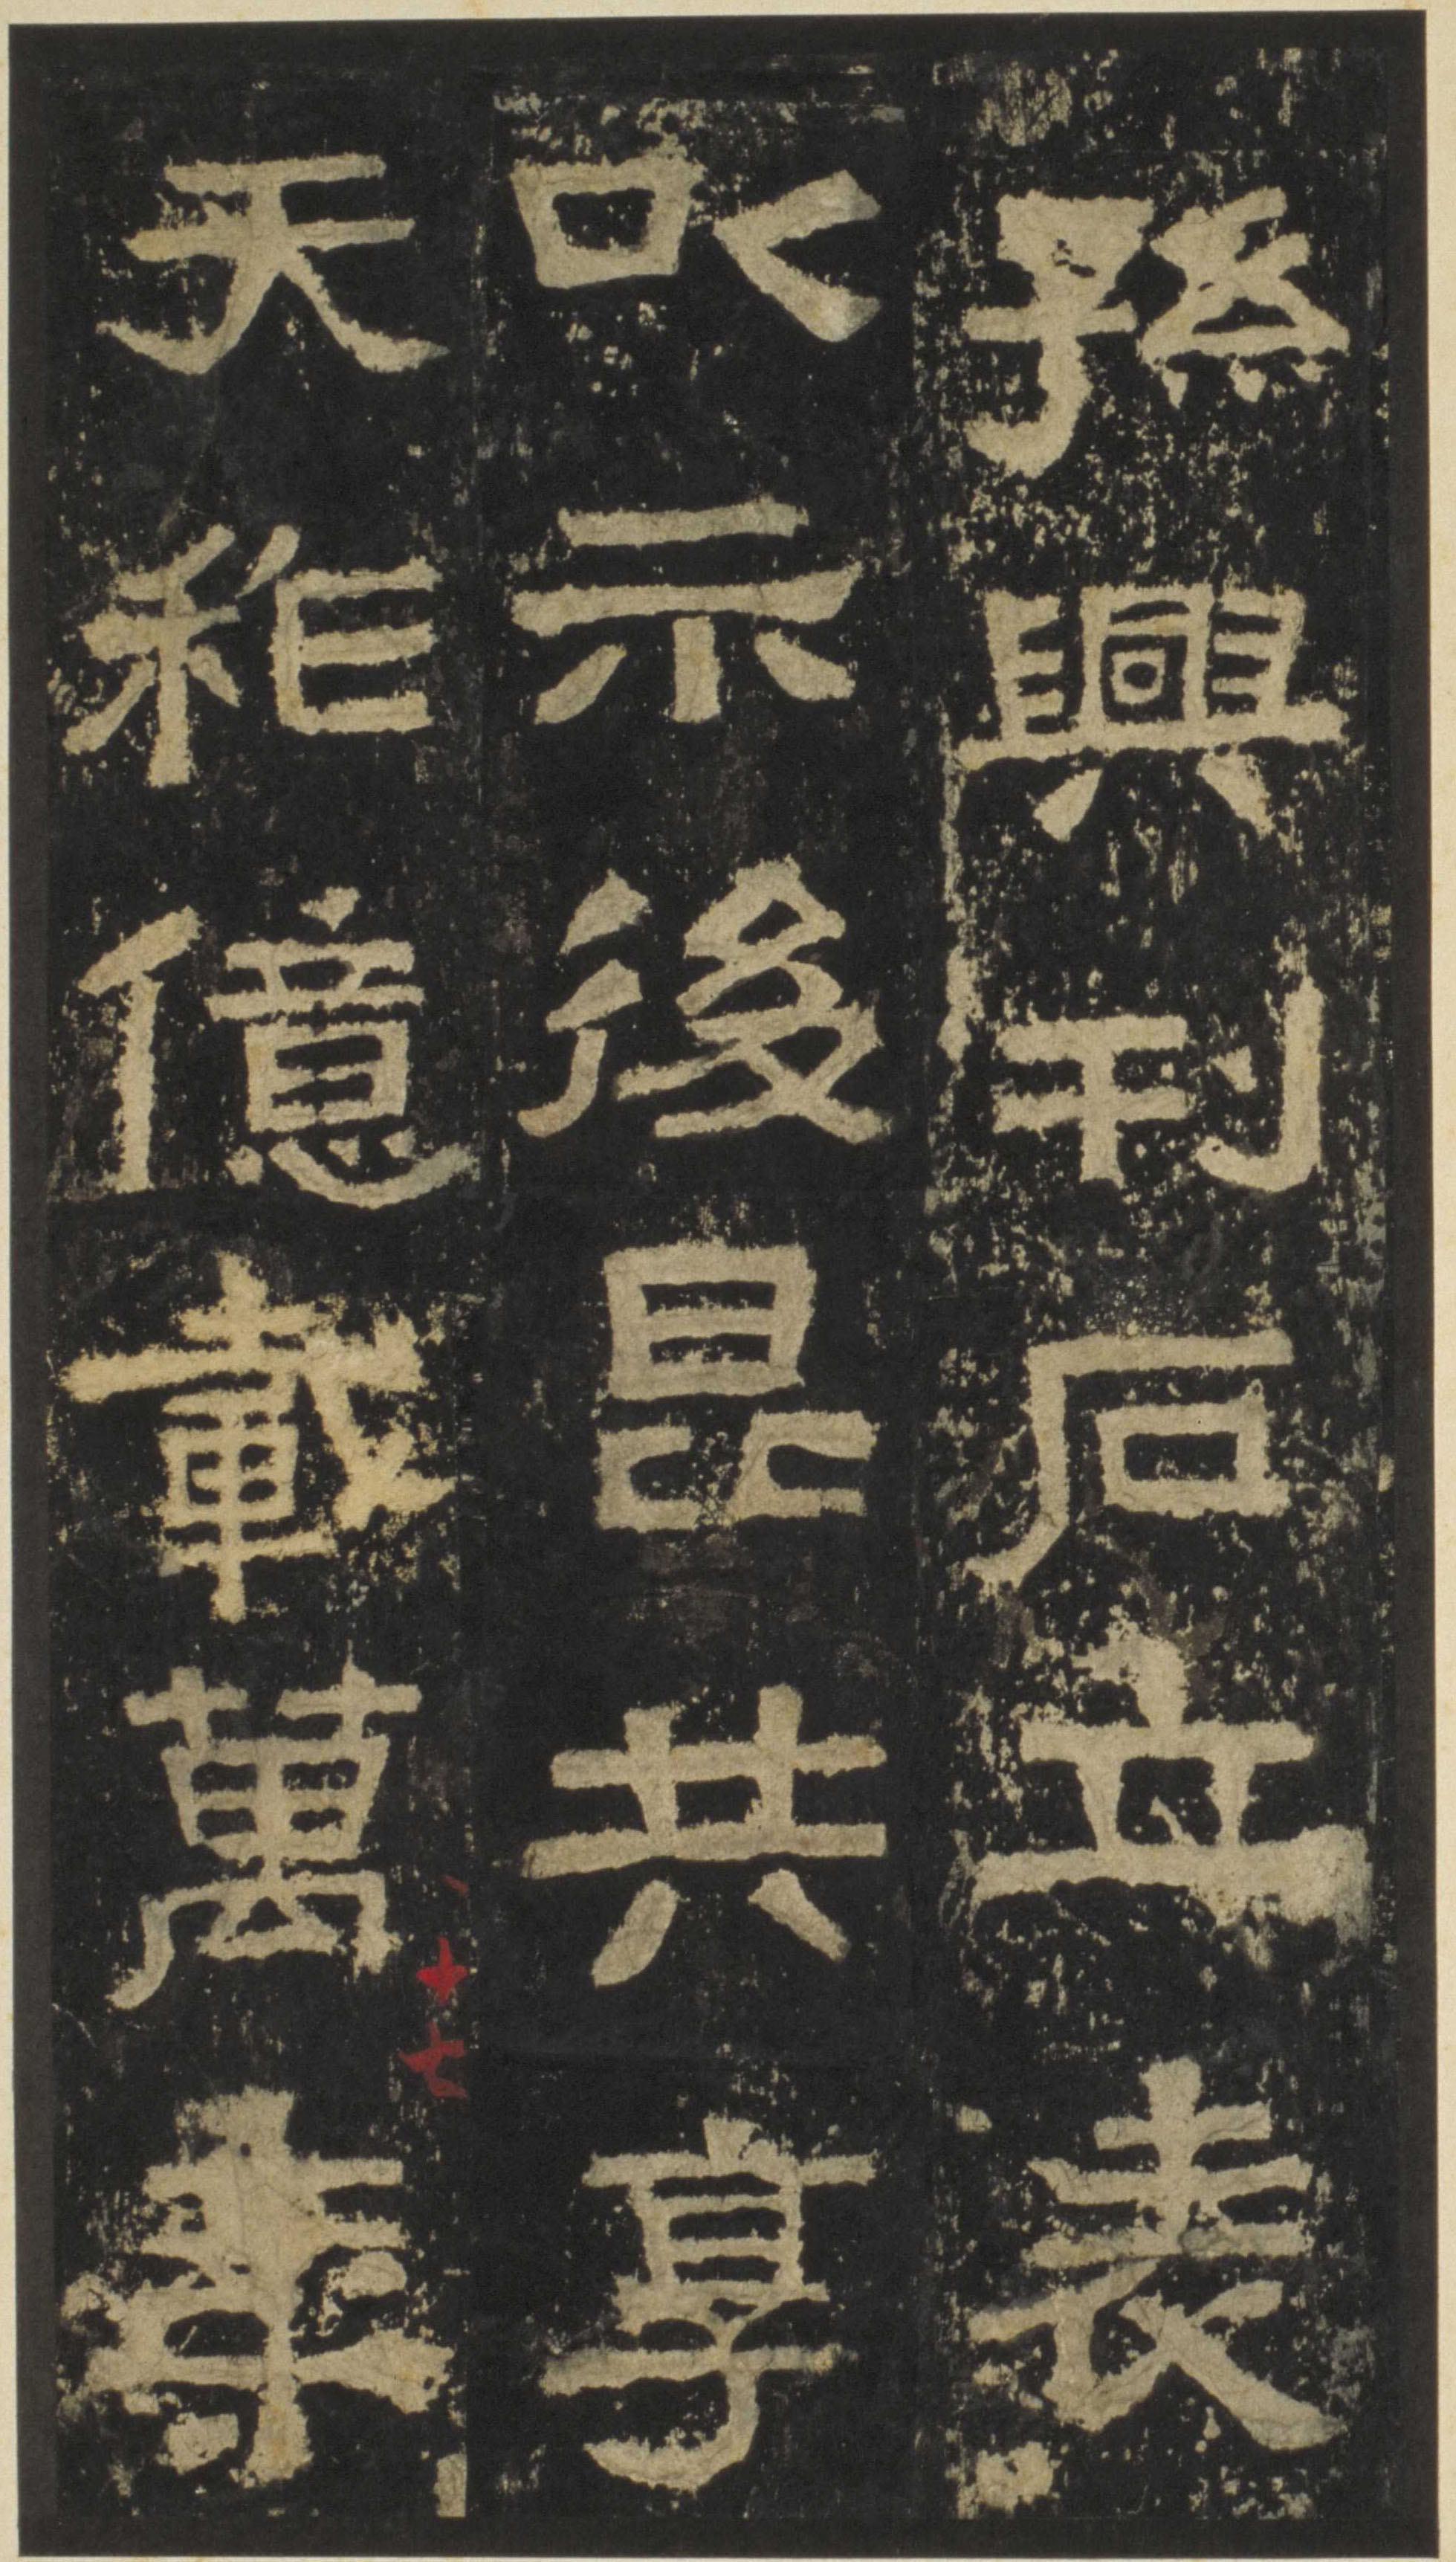 孫興刊石立表
以示後昆共享
天祚億載萬年
十七